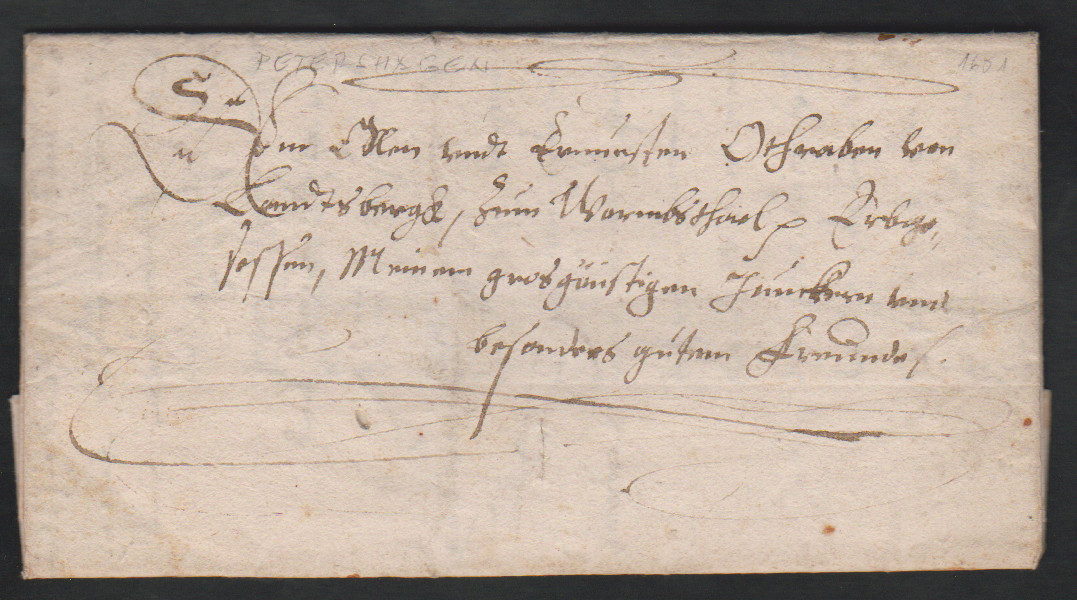 PETERSHAGEN 1601
Dem Edlen vndt Ernuesten Othraben von
Landtsbergk, zum Wormbsthael Erbge„
sessen, Meinem grosgünstigen Junckern vnd
besonders gutem Freunde.